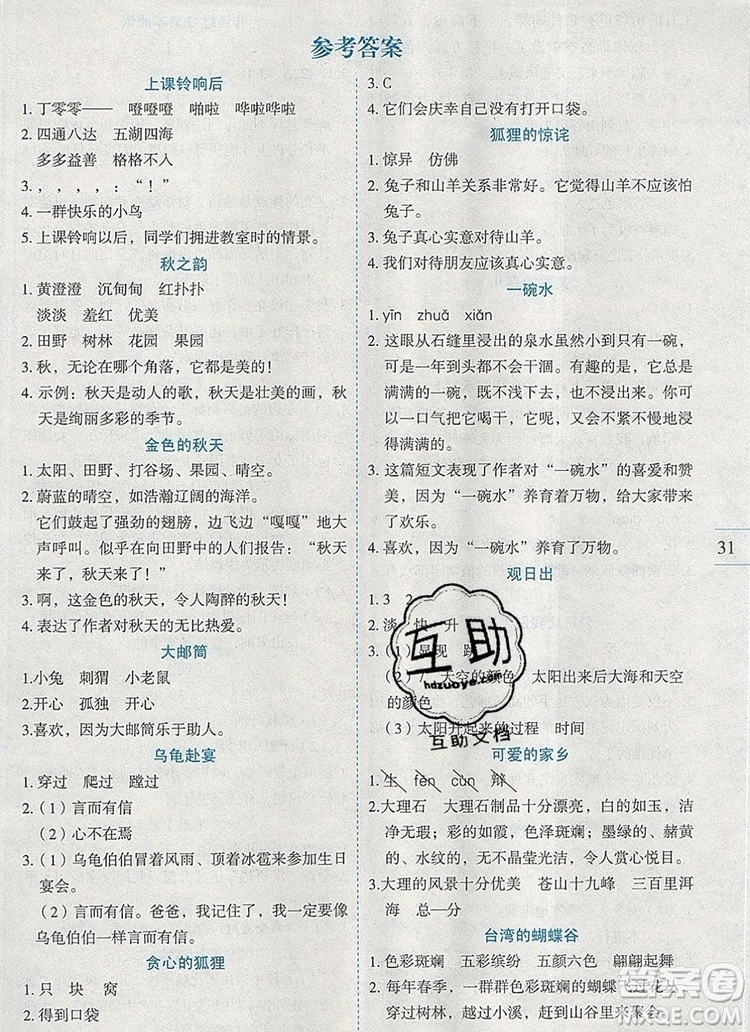 参考答案
上课铃响后
1. 丁零零—— 噔噔噔 啪啦 哗啦哗啦
2. 四通八达 五湖四海
多多益善 格格不入
3. ，，，，：“！”
4. 一群快乐的小鸟
5. 上课铃响以后，同学们拥进教室时的情景。
秋之韵
1. 黄澄澄 沉甸甸 红扑扑
淡淡 羞红 优美
2. 田野 树林 花园 果园
3. 秋，无论在哪个角落，它都是美的！
4. 示例：秋天是动人的歌，秋天是壮美的画，秋
天是绚丽多彩的季节。
金色的秋天
1. 太阳、田野、打谷场、果园、晴空。
2. 蔚蓝的晴空，如浩瀚辽阔的海洋。
它们鼓起了强劲的翅膀，边飞边“嘎嘎”地大
声呼叫。似乎在向田野中的人们报告：“秋天
来了，秋天来了！”
3. 啊，这金色的秋天，令人陶醉的秋天！
4. 表达了作者对秋天的无比热爱。
大邮筒
1. 小兔 刺猬 小老鼠
2. 开心 孤独 开心
3. 喜欢，因为大邮筒乐于助人。
乌龟赴宴
1. 穿过 爬过 蹚过
2. （1）言而有信
（2）心不在焉
3. （1）乌龟伯伯冒着风雨、顶着冰雹来参加生日
宴会。
（2）言而有信。爸爸，我记住了，我一定要像
乌龟伯伯一样言而有信。
贪心的狐狸
1. 只 块 窝
2. 得到口袋
3. C
4. 它们会庆幸自己没有打开口袋。
狐狸的惊诧
1. 惊异 仿佛
2. 兔子和山羊关系非常好。它觉得山羊不应该怕
兔子。
3. 兔子真心实意对待山羊。
4. 我们对待朋友应该真心实意。
一碗水
1. yīn zhuǎ xiǎn
2. 这眼从石缝里浸出的泉水虽然小到只有一碗，
可是一年到头水都不会干涸。有趣的是，它就
满满的一碗，既不浅下去，也不浸出来。你可
以一口气把它喝干，它呢，又不紧不慢地浸得
满满的。
3. 这篇短文表现了作者对“一碗水”的喜爱和赞
美，因为“一碗水”养育着万物，给大家带来
了欢乐。
4. 喜欢，因为“一碗水”养育了万物。
观日出
1. 3 2
2. 淡 快 升
3. （1）显现
天空的颜色 太阳出来后大海和天空
的颜色
（3）太阳升起来的过程 时间
可爱的家乡
1. 生 fèn cún 辩
2. 大理石 大理石制品十分漂亮，白的如玉，洁
净无瑕；彩的如霞，色泽斑斓；墨绿的、赭黄
的、水纹的，无不晶莹光洁，令人赏心悦目。
3. 大理的风景十分优美 苍山十九峰 三百里洱
海 总—分
台湾的蝴蝶谷
1. 色彩斑斓 五彩缤纷 五颜六色 翩翩起舞
2. 每年春季，一群群色彩斑斓的蝴蝶飞过花丛，
穿过树林，越过小溪，赶到山谷里来聚会。
31
互助
hdzuoye.com
互助文档
答案圈